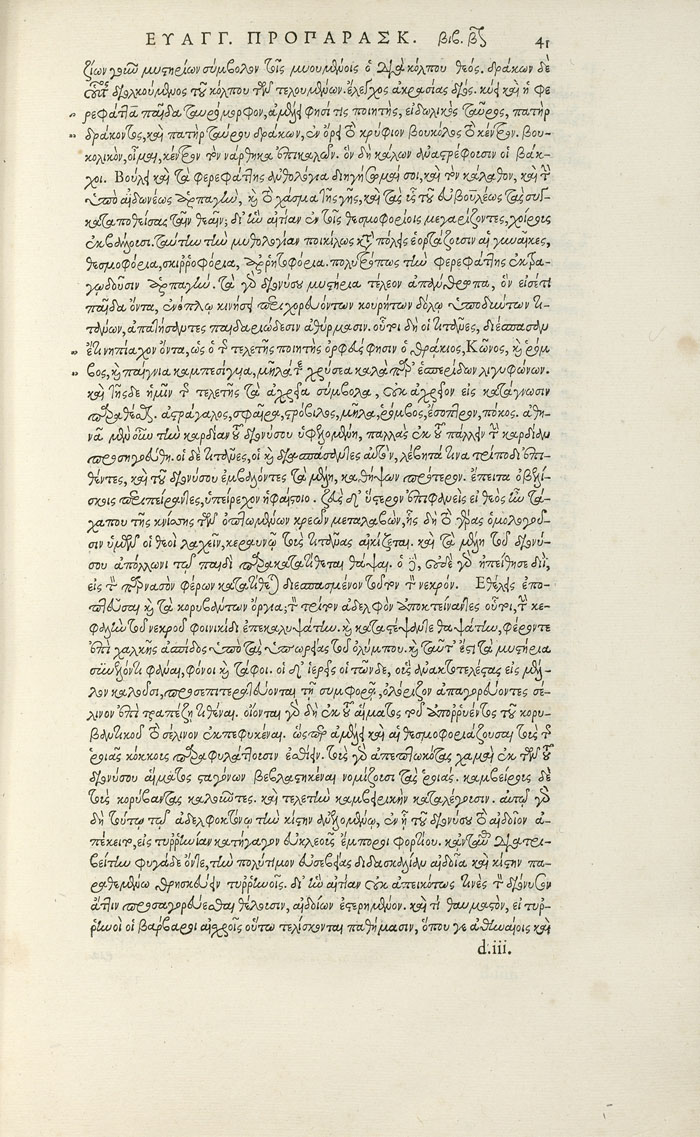 ΕΥΑΓΓ. ΠΡΟΠΑΡΑΣΚ. βιβ. β. 41
ζίων γοῦν μυστηρίων σύμβολον τοῖς μυουμένοις ὁ διὰ κόλπου θεός. δράκων δὲ
οὗτος διελκούμενος τοῦ κόλπου τῶν τελουμένων. ἔλεγχος ἀκρασίας διός. κύει καὶ ἡ φε
ρεφάττα παῖδα ταυρόμορφον, ἀμέλει φησί τις ποιητής, εἰδωλικὸς ταῦρος, πατὴρ
δράκοντος, καὶ πατὴρ ταύρου δράκων, ἐν ὄρει τὸ κρύφιον βουκόλος τὸ κέντρον. βου-
κολικὸν, οἶμαι, κέντρον τὸν νάρθηκα ἐπικαλῶν. ὃν δὴ καλῶν ἀναστρέφουσιν οἱ βάκ-
χοι. Βούλει καὶ τὰ φερεφάττης ἀνθολόγια διηγήσομαί σοι, καὶ τὸν κάλαθον, καὶ τὴν
ὑπὸ αἰδωνέως ἁρπαγὴν, καὶ τὸ χάσμα τῆς γῆς, καὶ τὰς ὗς τοῦ εὐβουλέως τὰς συγ-
καταποθείσας ταῖν θεαῖν; δι' ἣν αἰτίαν ἐν τοῖς θεσμοφορίοις μεγαρίζοντες, χοίρους
ἐκβάλλουσι. ταύτην τὴν μυθολογίαν ποικίλως κατὰ πόλεις ἑορτάζουσιν αἱ γυναῖκες,
θεσμοφόρια, σκιρροφόρια, ἀρρητοφόρια. πολυτρόπως τὴν φερεφάττης ἐκτρα-
γῳδοῦσιν ἁρπαγήν. τὰ γὰρ διονύσου μυστήρια τέλεον ἀπάνθρωπα, ὃν εἰσέτι
παῖδα ὄντα, ἐνόπλῳ κινήσει περιχορευόντων κουρήτων δόλῳ ὑποδύντων τι-
τάνων, ἀπατήσαντες παιδαριώδεσιν ἀθύρμασιν. οὗτοι δὴ οἱ τιτᾶνες, διέσπασαν
ἔτι νηπίαχον ὄντα, ὡς ὁ τῆς τελετῆς ποιητὴς ὀρφεύς φησιν ὁ θράκιος, Κῶνος, καὶ ῥόμ
βος, καὶ παίγνια καμπεσίγυια, μῆλά τε χρύσεα καλὰ παρ' ἑσπερίδων λιγυφώνων.
καὶ τῆσδε ἡμῖν τῆς τελετῆς τὰ ἀχρεῖα σύμβολα, οὐκ ἀχρεῖον εἰς κατάγνωσιν
παραθέσθαι. ἀστράγαλος, σφαῖρα, στρόβιλος, μῆλα, ῥόμβος, ἔσοπτρον, πόκος. ἀθη-
νᾶ μὲν οὖν τὴν καρδίαν τοῦ διονύσου ὑφελομένη, παλλὰς ἐκ τοῦ πάλλειν τὴν καρδίαν
προσηγορεύθη. οἱ δὲ τιτᾶνες, οἱ καὶ διασπάσαντες αὐτὸν, λέβητά τινα τρίποδι ἐπι-
θέντες, καὶ τοῦ διονύσου ἐμβαλόντες τὰ μέλη, καθήψουν πρότερον. ἔπειτα ὀβελί-
σκοις περιπείραντες, ὑπείρεχον ἡφαίστοιο. ζεὺς δ' ὕστερον ἐπιφανεὶς εἰ θεὸς ἦν τά-
χα που τῆς κνίσσης τῶν ὀπτωμένων κρεῶν μεταλαβὼν, ἧς δὴ τὸ γέρας ὁμολογοῦ-
σιν ὑμῶν οἱ θεοὶ λαχεῖν, κεραυνῷ τοὺς τιτᾶνας αἰκίζεται. καὶ τὰ μέλη τοῦ διονύ-
σου ἀπόλλωνι τῷ παιδὶ παρακατατίθεται θάψαι. ὁ δὲ, οὐδὲ γὰρ ἠπείθησε διῒ,
εἰς τὸν παρνασὸν φέρων κατατίθεται διεσπασμένον τὸν νεκρόν. Εθέλεις ἐπο-
πτεῦσαι καὶ τὰ κορυβάντων ὄργια; τὸν τρίτον ἀδελφὸν ἀποκτείναντες οὗτοι, τὴν κε-
φαλὴν τοῦ νεκροῦ φοινικίδι ἐπεκαλυψάτην. καὶ καταστέψαντε θαψάτην, φέροντε
ἐπὶ χαλκῆς ἀσπίδος ὑπὸ τὰς ὑπωρείας τοῦ ὀλύμπου. καὶ ταῦτ' ἔστι τὰ μυστήρια
συνελόντι φάναι, φόνοι καὶ τάφοι. οἱ δ' ἱερεῖς οἱ τῶνδε, οὓς ἀνακτοτελέστας οἷς μέ-
λον καλοῦσι, προσεπιτερατεύονται τῇ συμφορᾷ, ὁλόριζον ἀπαγορεύοντες σέ-
λινον ἐπὶ τραπέζης τιθέναι. οἴονται γὰρ δὴ ἐκ τοῦ αἵματος τοῦ ἀπορρυέντος τοῦ κορυ-
βαντικοῦ τὸ σέλινον ἐκπεφυκέναι. ὥσπερ ἀμέλει καὶ αἱ θεσμοφοριάζουσαι τοὺς τῆς
ῥοιᾶς κόκκους παραφυλάττουσιν ἐσθίειν. τοὺς γὰρ ἀπεπτωκότας χαμαὶ ἐκ τῶν τοῦ
διονύσου αἵματος σταγόνων βεβλαστηκέναι νομίζουσι τὰς ῥοιάς. καμβείρους δὲ
τοὺς κορύβαντας καλοῦντες. καὶ τελετὴν καμβειρικὴν καταλέγουσιν. αὐτὼ γὰρ
δὴ τούτω τὼ ἀδελφοκτόνω τὴν κίστην ἀνελομένω, ἐν ᾗ τὸ τοῦ διονύσου τὸ αἰδοῖον ἀ-
πέκειτο, εἰς τυρρηνίαν κατήγαγον εὐκλεοῦς ἔμποροι φορτίου. κἀνταῦθα διετρι-
βέτην φυγάδε ὄντε, τὴν πολύτιμον εὐσεβείας διδασκαλίαν αἰδοῖα καὶ κίστην πα-
ραθεμένω θρησκεύειν τυρρηνοῖς. δι' ἣν αἰτίαν οὐκ ἀπεικότως τινὲς τὸν διόνυσον
ἄττιν προσαγορεύεσθαι θέλουσιν, αἰδοίων ἐστερημένον. καὶ τί θαυμαστὸν, εἰ τυρ-
ρηνοὶ οἱ βάρβαροι αἰσχροῖς οὕτω τελίσκονται παθήμασιν, ὅπου γε ἀθηναίοις καὶ
d.iii.